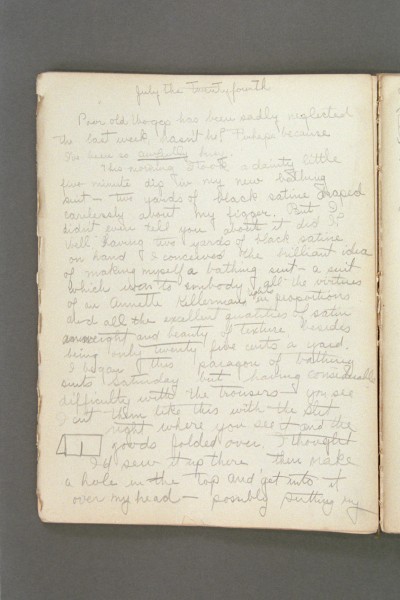 July the Twenty fourth
Poor old has been sadly neglected
the last week, hasn't he? Perhaps because
I've been so awfully busy.
This morning I took a dainty little
five minute dip in my new bathing
suit – two yards of black satine draped
carelessly about my figger. But I
didn't even tell you about it did I?
Well having two yards of black satine
on hand I conceived the brilliant idea
of making myself a bathing suit – a suit
which was to embody all the virtues
of an Annette Kellerman in proportions
and all the excellent qualities of satin
in weight and beauty of texture besides
being only twenty five cents a yard.
I began this paragon of bathing
suits Saturday but having considerable
difficulty with the trousers – you see
I cut them like this with the slit
right where you see it and the
goods folded over. I thought
I'd sew it up there then make
a hole in the top and get into it
over my head – possibly putting my